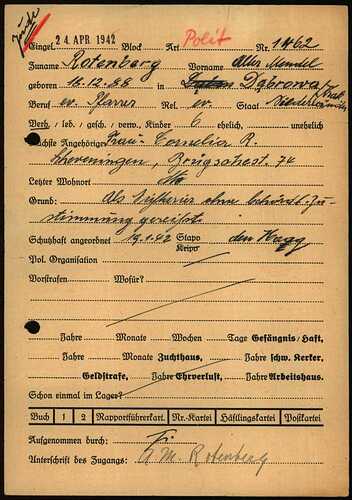 Jude
Eingel. 24 APR 1942 Block Art Polit Nr. 1462
Zuname Rotenberg Vorname Alter Mendel
geboren 16.12.88 in Dąbrowa
Beruf ev. Pfarrer Rel. ev. Staat
Verh./led./gesch./verw., Kinder 6 ehelich, unehelich
Nächste Angehörige: Frau: Cornelia R.
Scheveningen, 74
Letzter Wohnort
Grund: Als ohne behördl. Zu-
stimmung gereist.
Schutzhaft angeordnet 19.1.42 Stapo Kripo den Haag
Pol. Organisation
Vorstrafen Wofür?
Jahre Monate Wochen Tage Gefängnis/Haft,
Jahre Monate Zuchthaus, Jahre schw. Kerker,
Geldstrafe, Jahre Ehrverlust, Jahre Arbeitshaus.
Schon einmal im Lager?
Buch 1 2 Rapportführerkart. Nr.-Kartei Häftlingskartei Postkartei
Aufgenommen durch:
Unterschrift des Zugangs: A M Rotenberg